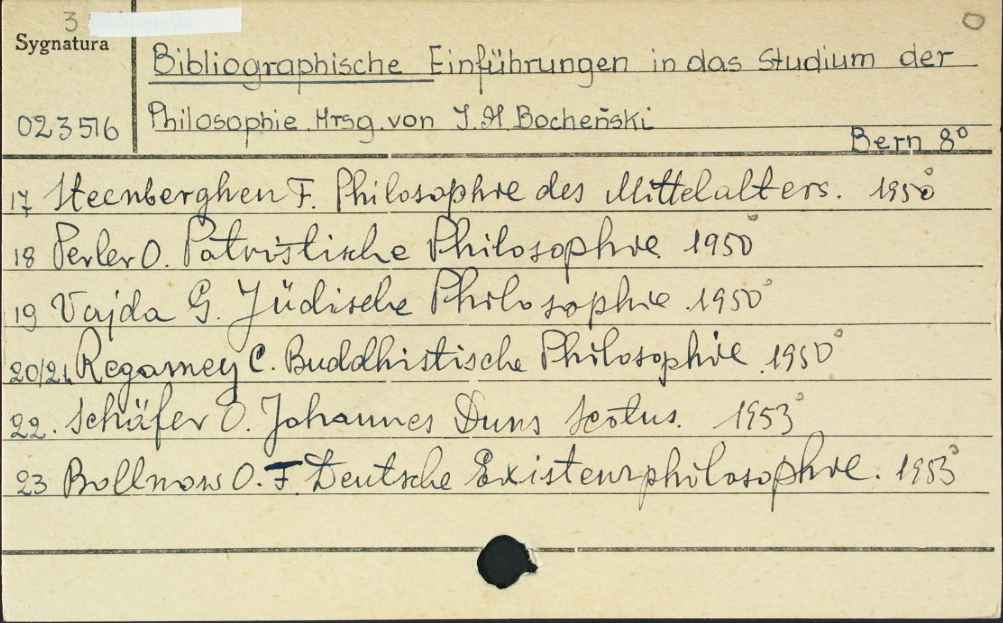 3
Sygnatura
Bibliographische Einführungen in das Studium der
023516
Philosophie. Hrsg. von I. M. Bocheński
Bern 8°
17 Steenberghen F. Philosophie des Mittelalters. 1950°
18 Perler O. Patristische Philosophie 1950°
19 Vajda G. Jüdische Philosophie. 1950°
20/21. Regamey C. Buddhistische Philosophie. 1950°
22. Schäfer O. Johannes Duns Scotus. 1953°
23 Bollnow O. F. Deutsche Existenzphilosophie. 1953°